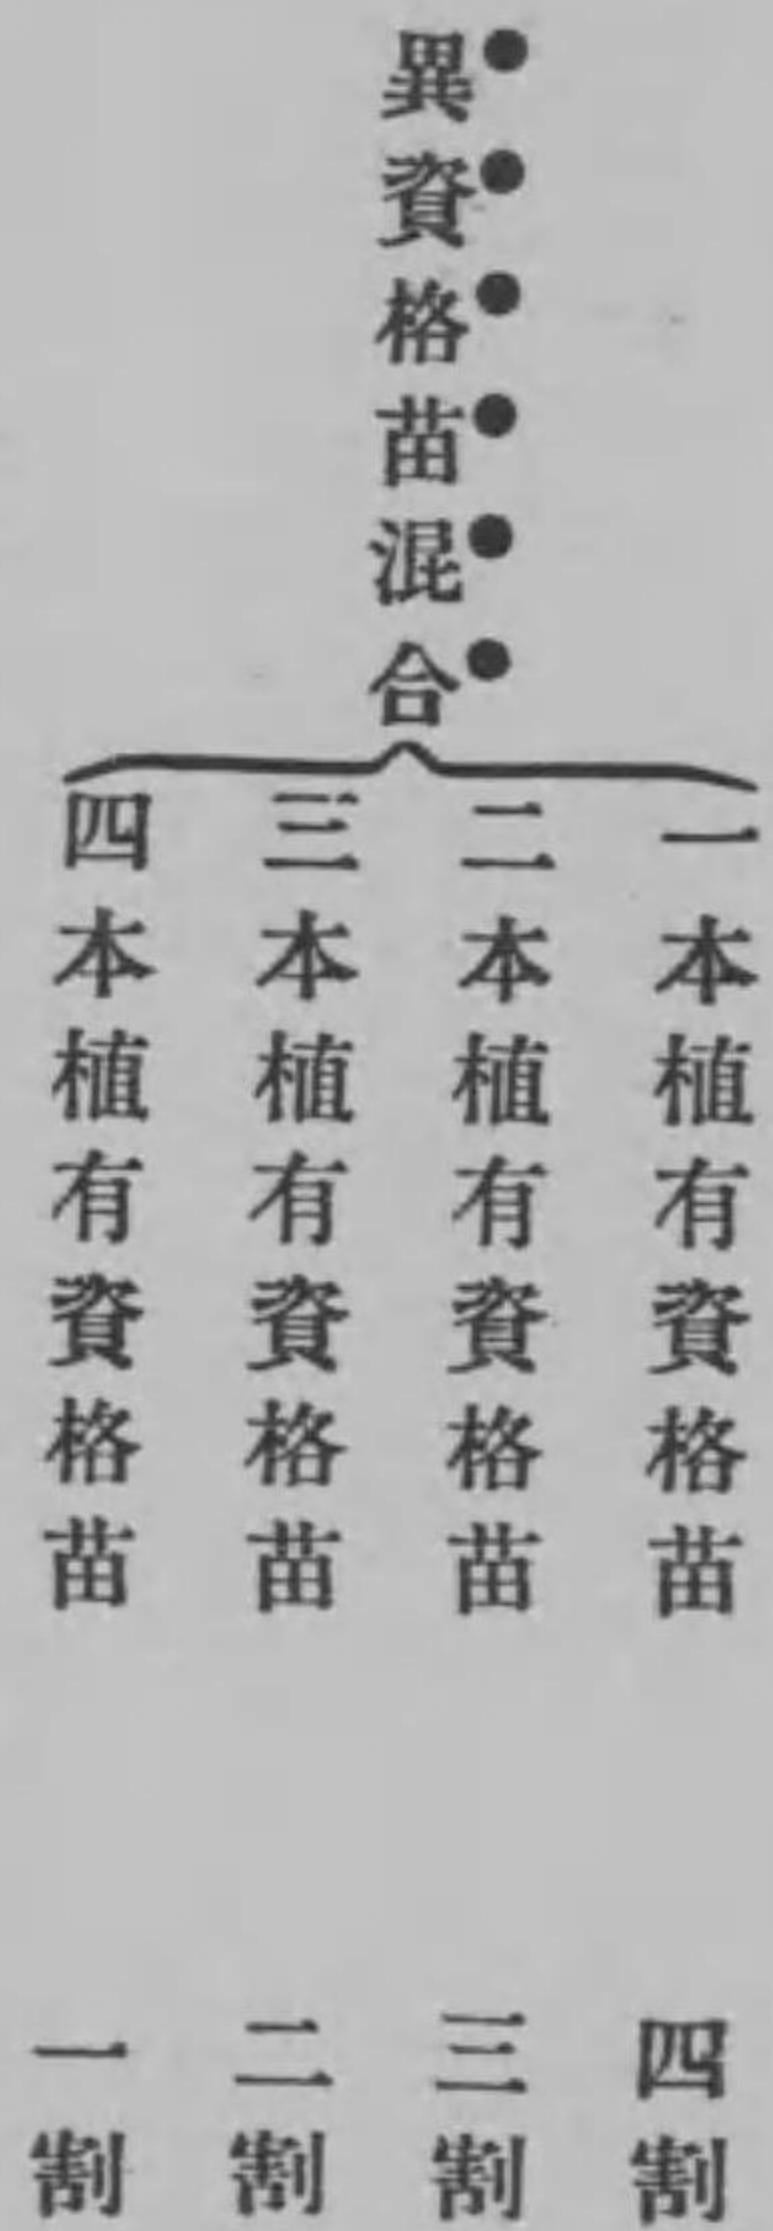 異資格苗混合
一本植有資格苗 四割
二本植有資格苗 三割
三本植有資格苗 二割
四本植有資格苗 一割